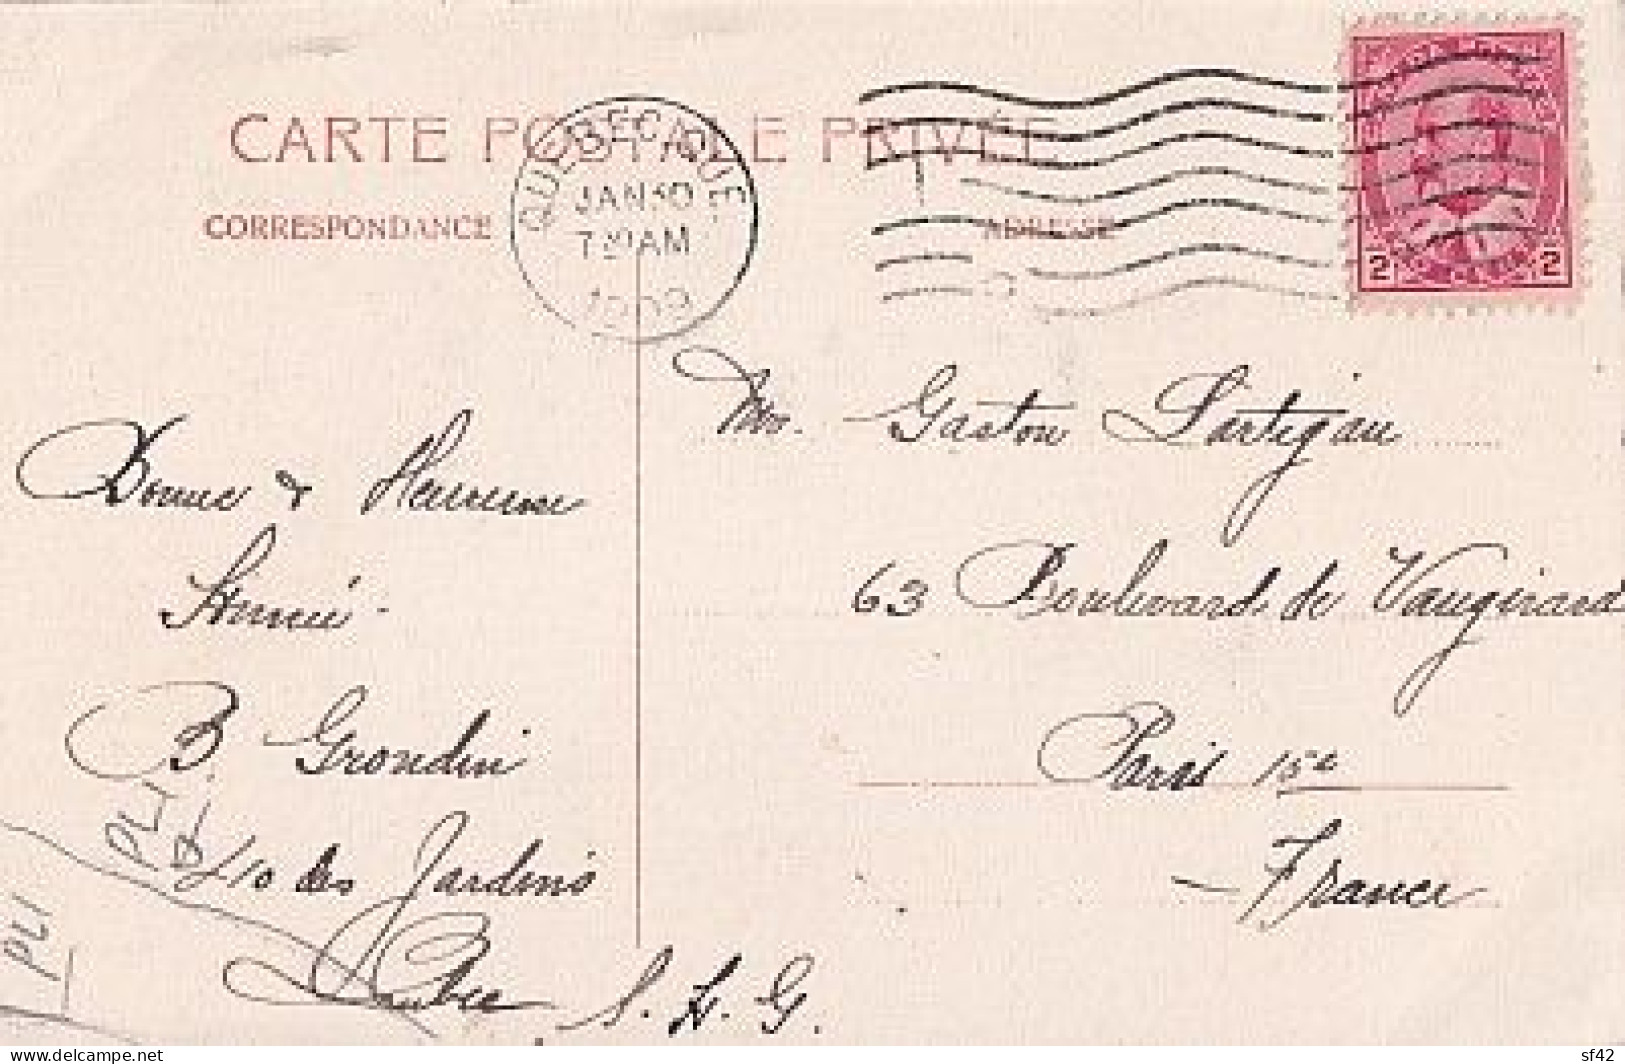 CARTE POSTALE PRIVÉE
CORRESPONDANCE
ADRESSE
QUÉBEC, QUE
JAN 30
7 30 AM
1909
2 2
Bonne & Heureuse
Année.
B Grondin
110 des Jardins
Quebec
S. H. G.
Mr. Gaston Lartigau
63 Boulevard de Vaugirard
Paris 15e
France
PLI
PLI
www.delcampe.net
sf42